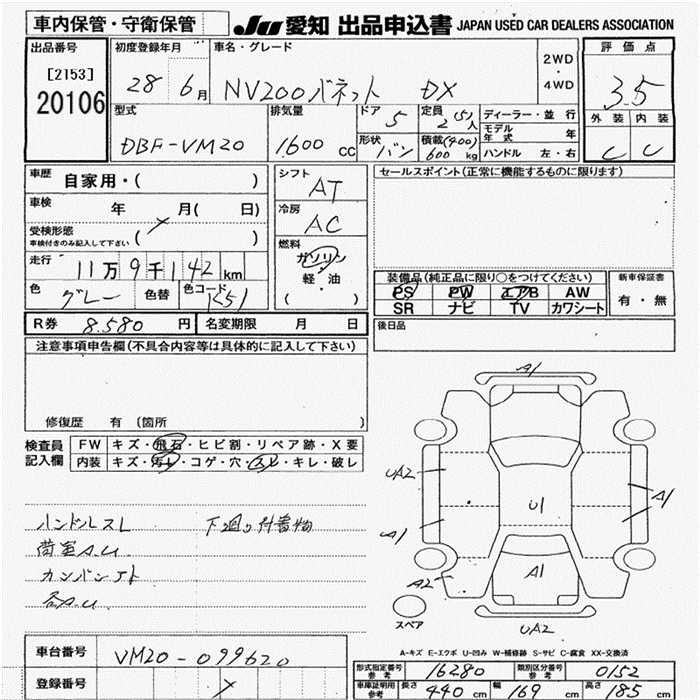 車内保管・守衛保管
JU 愛知 出品申込書 JAPAN USED CAR DEALERS ASSOCIATION
出品番号
[2153]
20106
初度登録年月
28年 6月
車名・グレード
NV200バネット DX
2WD
・
4WD
評価点
3.5
外装 内装
C C
型式
DBF-VM20
排気量
1600 cc
ドア
5
形状
バン
定員
2(5)人
積載(400)
600 kg
ディーラー・並行
モデル年式 年
ハンドル 左・右
車歴 自家用・( )
車検 年 月( 日)
受検形態
車検付きのみ記入して下さい ( )
走行 11万9千142 km
色 グレー 色替 色コード K51
シフト
AT
冷房
AC
燃料
ガソリン
軽・油
( )
セールスポイント(正常に機能するものに限ります)
装備品(純正品に限り○をつけてください)
PS PW エアB AW
SR ナビ TV カワシート
新車保証書
有・無
R券 8.580 円 名変期限 月 日
後日品
注意事項申告欄(不具合内容等は具体的に記入して下さい)
修復歴 有 〔箇所 〕
検査員記入欄
FW キズ・飛石・ヒビ割・リペア跡・X要
内装 キズ・汚レ・コゲ・穴・スレ・キレ・破レ
ハンドルスレ 下廻り付着物
荷室A.U
カンバンアト
各A.U
A1
UA2
A1
U1
A1
A1
A2
UA2
スペア
A-キズ E-エクボ U-凹み W-補修跡 S-サビ C-腐食 XX-交換済
車台番号 VM20-099620
登録番号
型式指定番号 参考 16280 類別区分番号 参考 0152
車庫証明用 参考 長さ 440 cm 幅 169 cm 高さ 185 cm